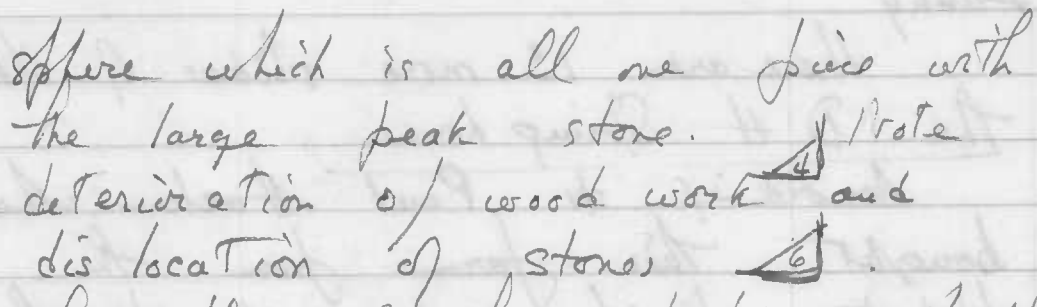 sphere which is all one piece with
the large peak stone. Note
deterioration of wood work 4 and
dislocation of stones 6.